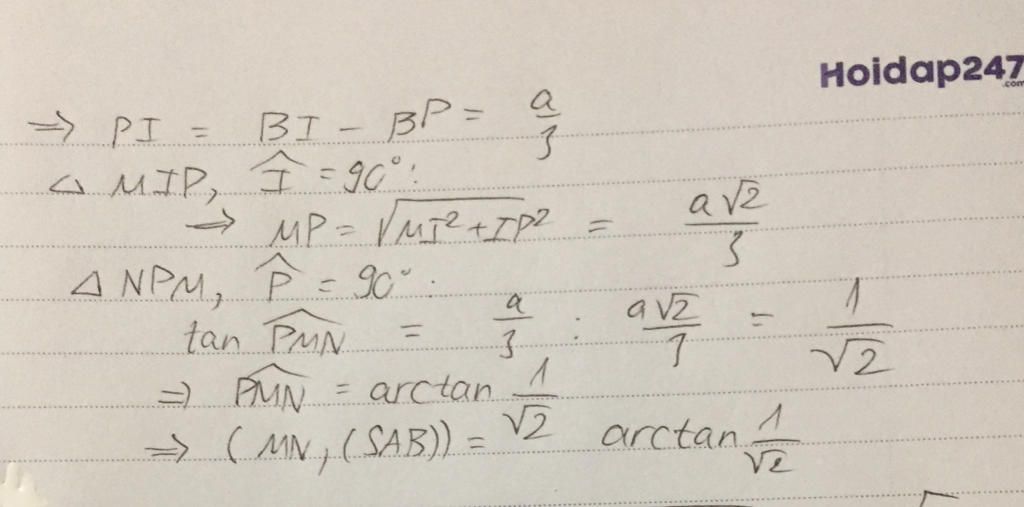 Hoidap247
.com
⇒ PI = BI - BP = a/3
△ MIP, Î = 90°:
⇒ MP = √(MI² + IP²) = a√2/3
△ NPM, P̂ = 90°:
tan P̂MN = a/3 : a√2/3 = 1/√2
⇒ P̂MN = arctan 1/√2
⇒ (MN, (SAB)) = arctan 1/√2